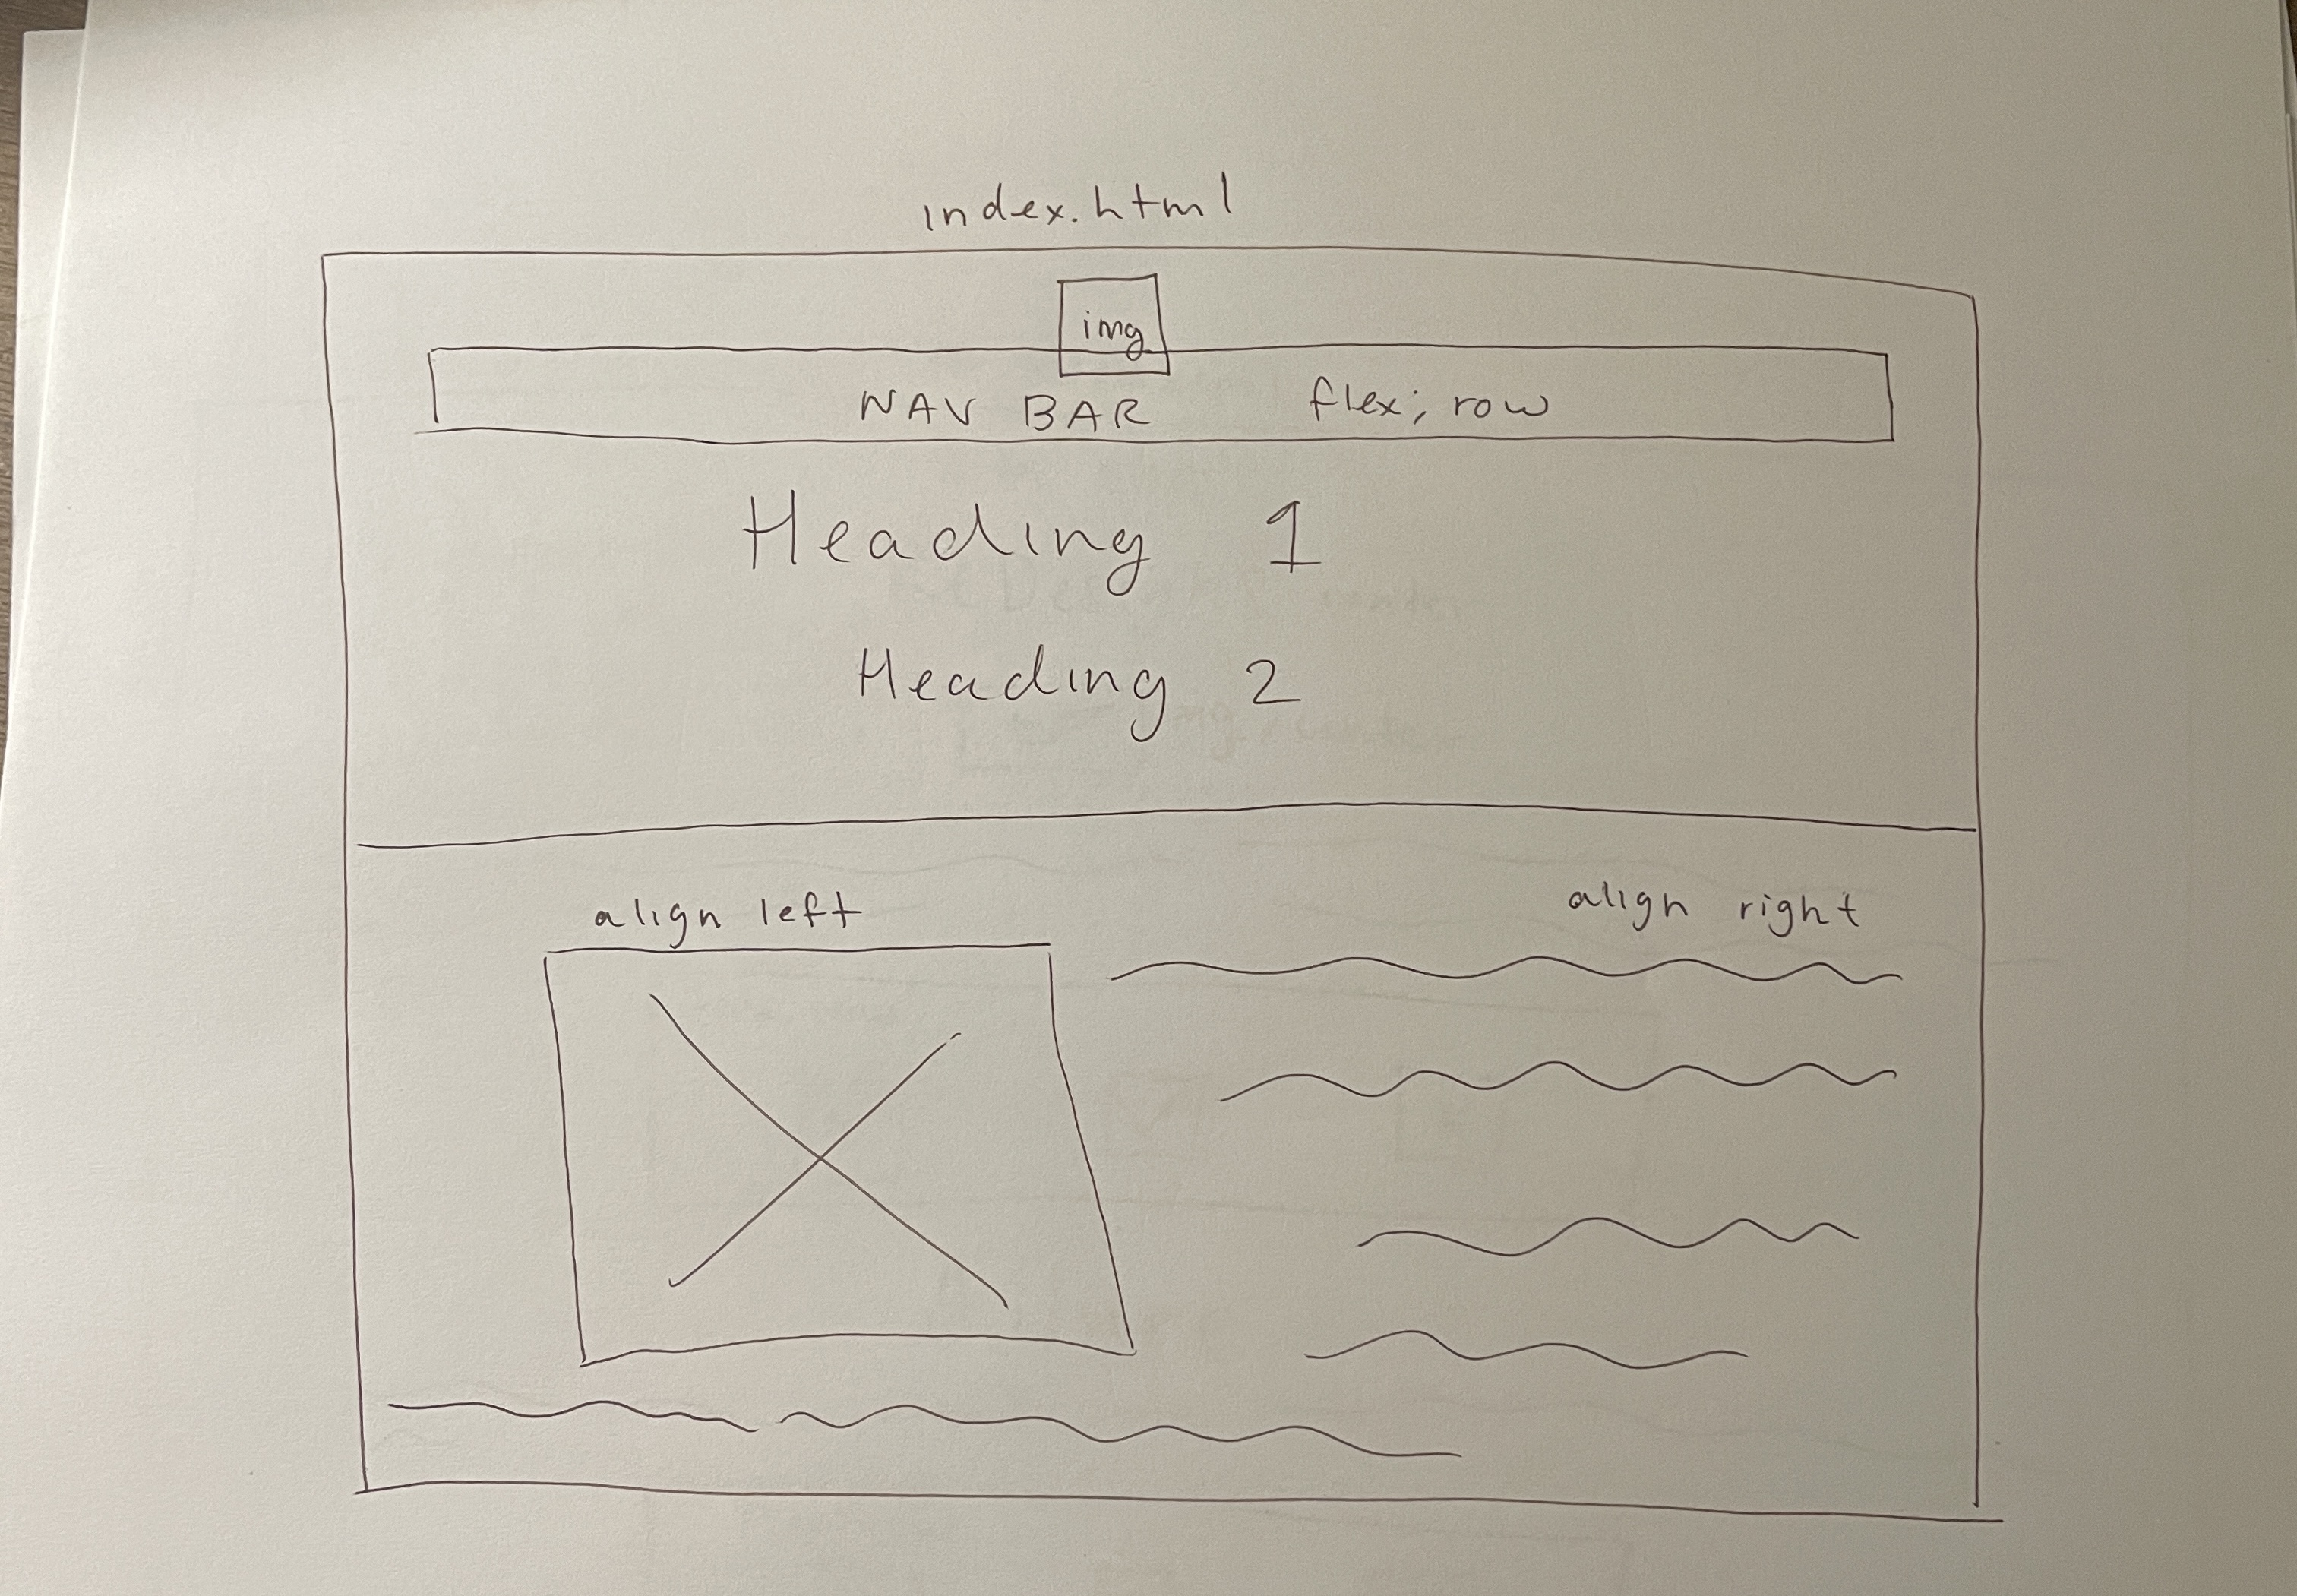 index.html
img
NAV BAR flex; row
Heading 1
Heading 2
align left align right